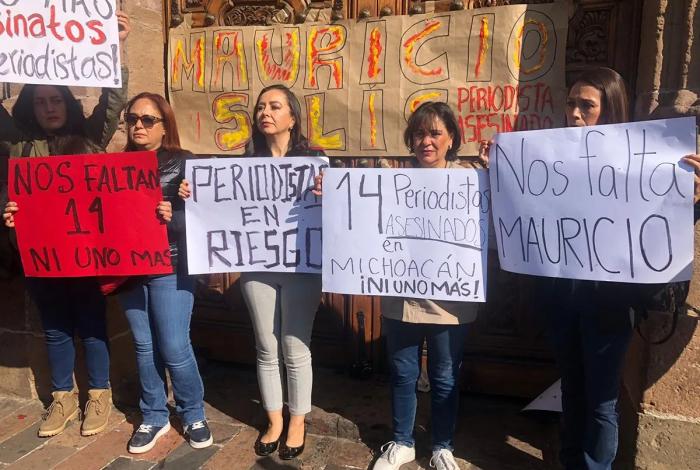 sinatos
Periodistas!
MAURICIO
SOLÍS
PERIODISTA
ASESINADO
NOS FALTAN
14
NI UNO MAS
PERIODISTA
EN
RIESGO
14 Periodistas
ASESINADOS
en
MICHOACÁN
¡NI UNO MÁS!
Nos falta
MAURICIO